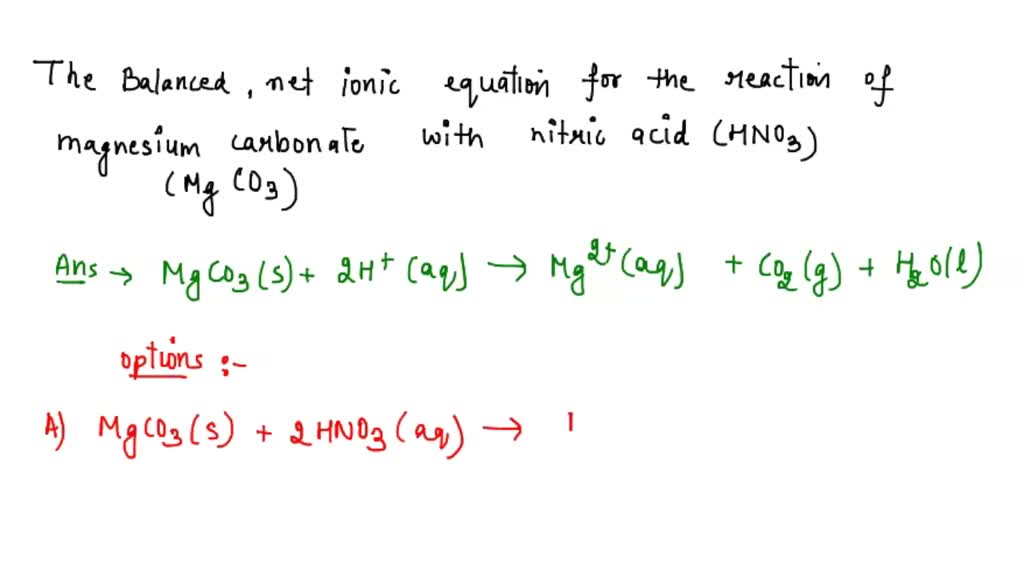 The Balanced, net ionic equation for the reaction of
magnesium carbonate with nitric acid (HNO3)
(MgCO3)
Ans → MgCO3(s) + 2H⁺ (aq) → Mg²⁺(aq) + CO₂(g) + H₂O(l)
options :-
A) MgCO3(s) + 2HNO3(aq) →